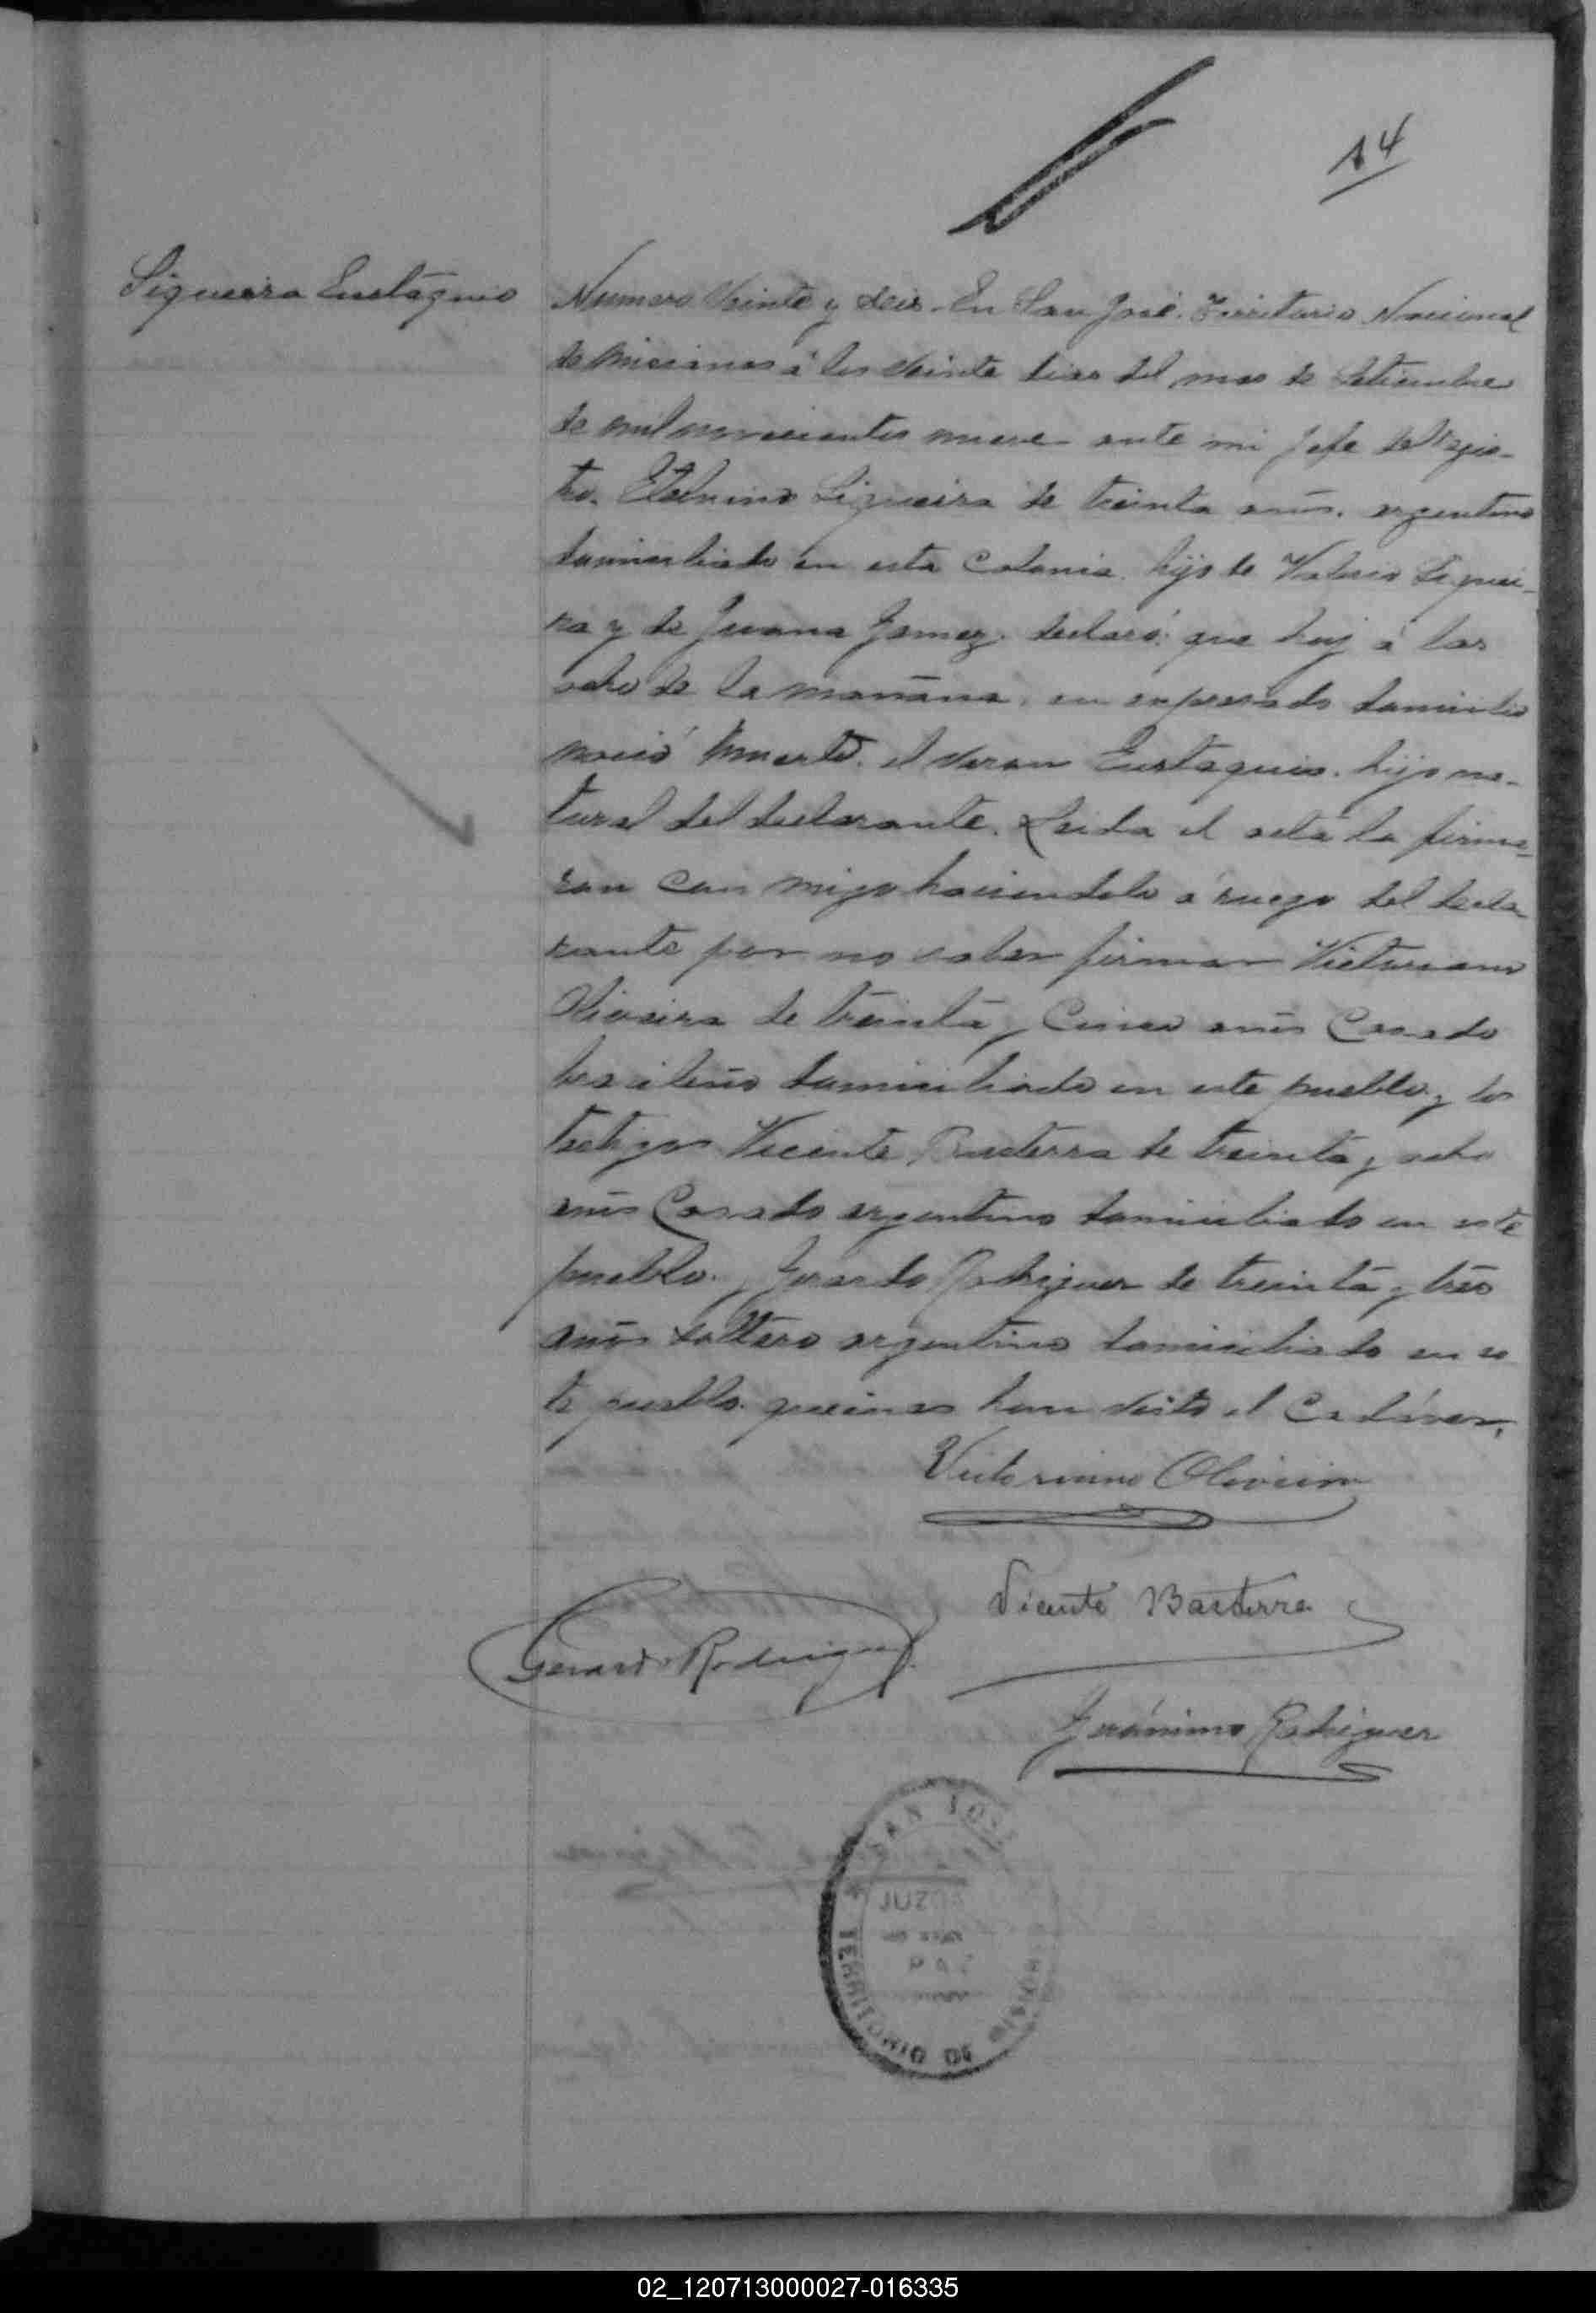 14
Siqueira Eustaquio
Numero Veinte y seis. En San José. Territorio Nacional
de Misiones á los veinte dias del mes de Setiembre
de mil novecientos nueve ante mi Jefe del Regis-
tro. Siqueira de treinta años. argentino
domiciliado en esta Colonia. hijo de Valerio Siquei-
ra y de Juana Gomez. declaró: que hoy á las
ocho de la mañana. en expresado domicilio
nació muerto. el varon Eustaquio. hijo na-
tural del declarante. Leida el acta la firma-
ron con migo haciendolo á ruego del decla-
rante por no saber firmar Victoriano
Oliveira de treinta y Cinco años Casado
brasileño domiciliado en este pueblo. y los
testigos Vicente Basterra de treinta y ocho
años Casado argentino domiciliado en este
pueblo. y Gerardo Rodriguez de treinta y tres
años soltero argentino domiciliado en es
te pueblo. quienes han visto el Cadáver.
Victoriano Oliveira
Vicente Basterra
Gerardo Rodriguez
Gerónimo Rodriguez
SAN JOSE
JUZG
PAZ
TERRITORIO DE MISIONES
02_120713000027-016335